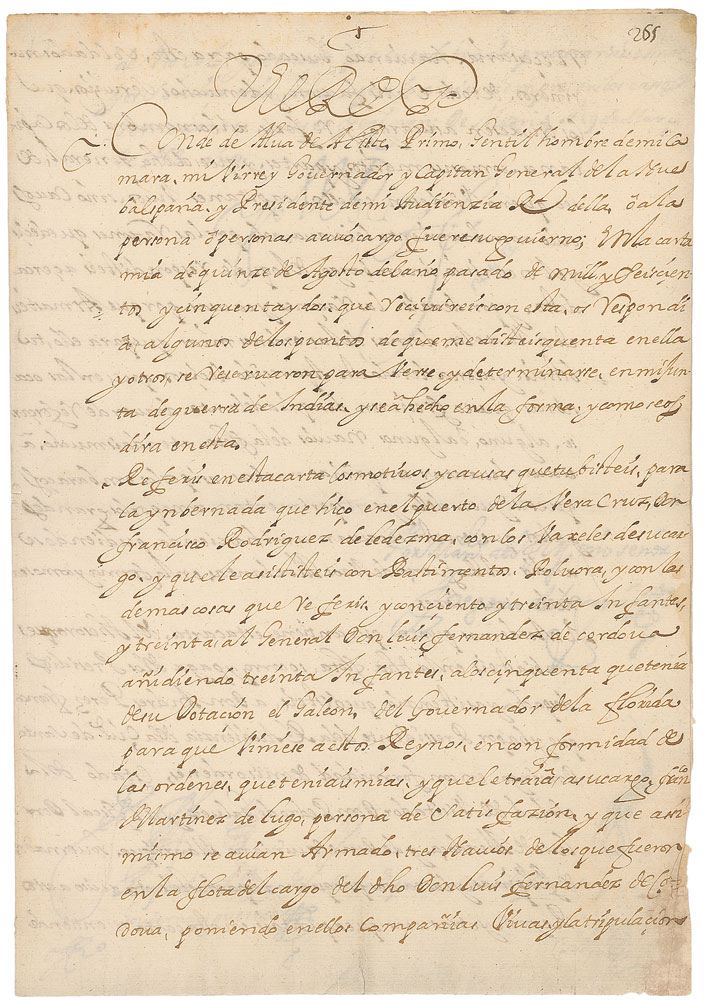 265
El Rey
Conde de Alua de Aliste, Primo, Gentil hombre de mi Ca
mara, mi Virrey Gouernador y Capitan General de la Nue
ba españa, y Presidente de mi Audienzia Rl della, ò a la
persona ò personas a cuyo cargo fuere su gouierno; En la carta
mia de quinze de Agosto del año pasado de mill y seiscien
tos y cinquenta y dos, que reciuireis con esta, os respondi
à algunos de los puntos de que me disteis quenta en ella
y otros, se reseruaron para verse y determinarse, en mi Jun
ta de guerra de Indias, y se à hecho en la forma, y como se os
dira en esta.
Referis en esta carta los motiuos y causas que tubisteis, para
la ynbernada que hiço en el puerto de la Vera Cruz, Don
francisco Rodriguez de ledezma, con los vaxeles de su car
go, y que le asististeis con Bastimentos, Poluora, y con las
demas cosas que referis, y con ciento y treinta Infantes,
y treinta, al General Don luis fernandez de cordoua
añidiendo treinta Infantes, a los cinquenta que tenia
de su Dotacion el Galeon, del Gouernador de la florida
para que viniese a estos Reynos, en conformidad de
las ordenes, que teniais mias, y que le traia a su cargo, franco
Martinez de lugo, persona de satisfazion, y que asi
mismo se auian Armado, tres Nauios de los que fueron
en la flota del cargo del dho Don luis fernandez de Cor
doua, poniendo en ellos Compañias Viuas, y la tripulacion